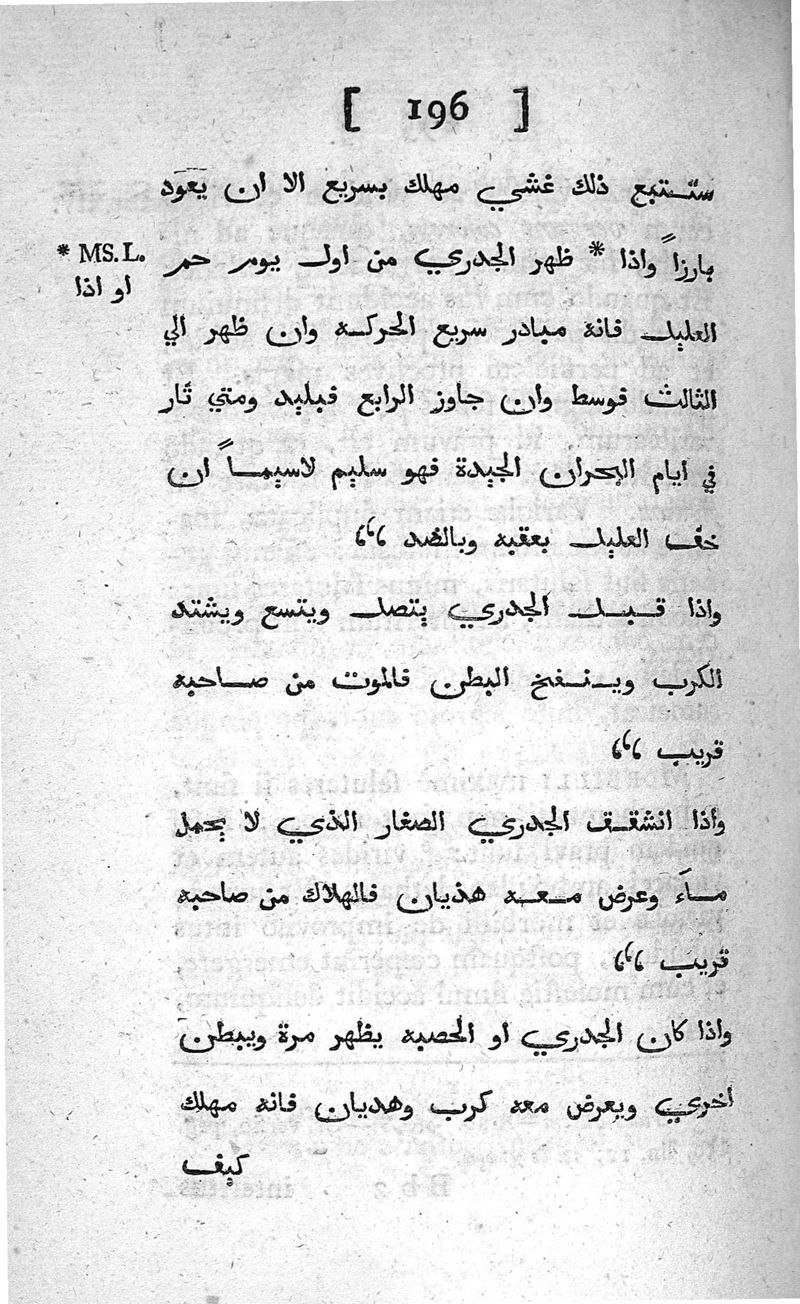 [ 196 ]
ستتبع ذلك غشي مهلك بسريع الا ان يعود
بارزاً واذا * ظهر الجدري من اول يوم حم
* MS. L.
او اذا
العليل فانه مبادر سريع الحركة وان ظهر الي
الثالث فوسط وان جاوز الرابع فبليد ومتي ثار
في ايام البحران الجيدة فهو سليم لاسيماً ان
خف العليل بعقبه وبالضد
واذا قبل الجدري يتصل ويتسع ويشتد
الكرب وينفخ البطن فالموت من صاحبه
قريب
واذا انشقق الجدري الصغار الذي لا يحمل
ماَء وعرض معه هذيان فالهلاك من صاحبه
قريب
واذا كان الجدري او الحصبه يظهر مرة ويبطن
اخري ويعرض معه كرب وهديان فانه مهلك
كيف